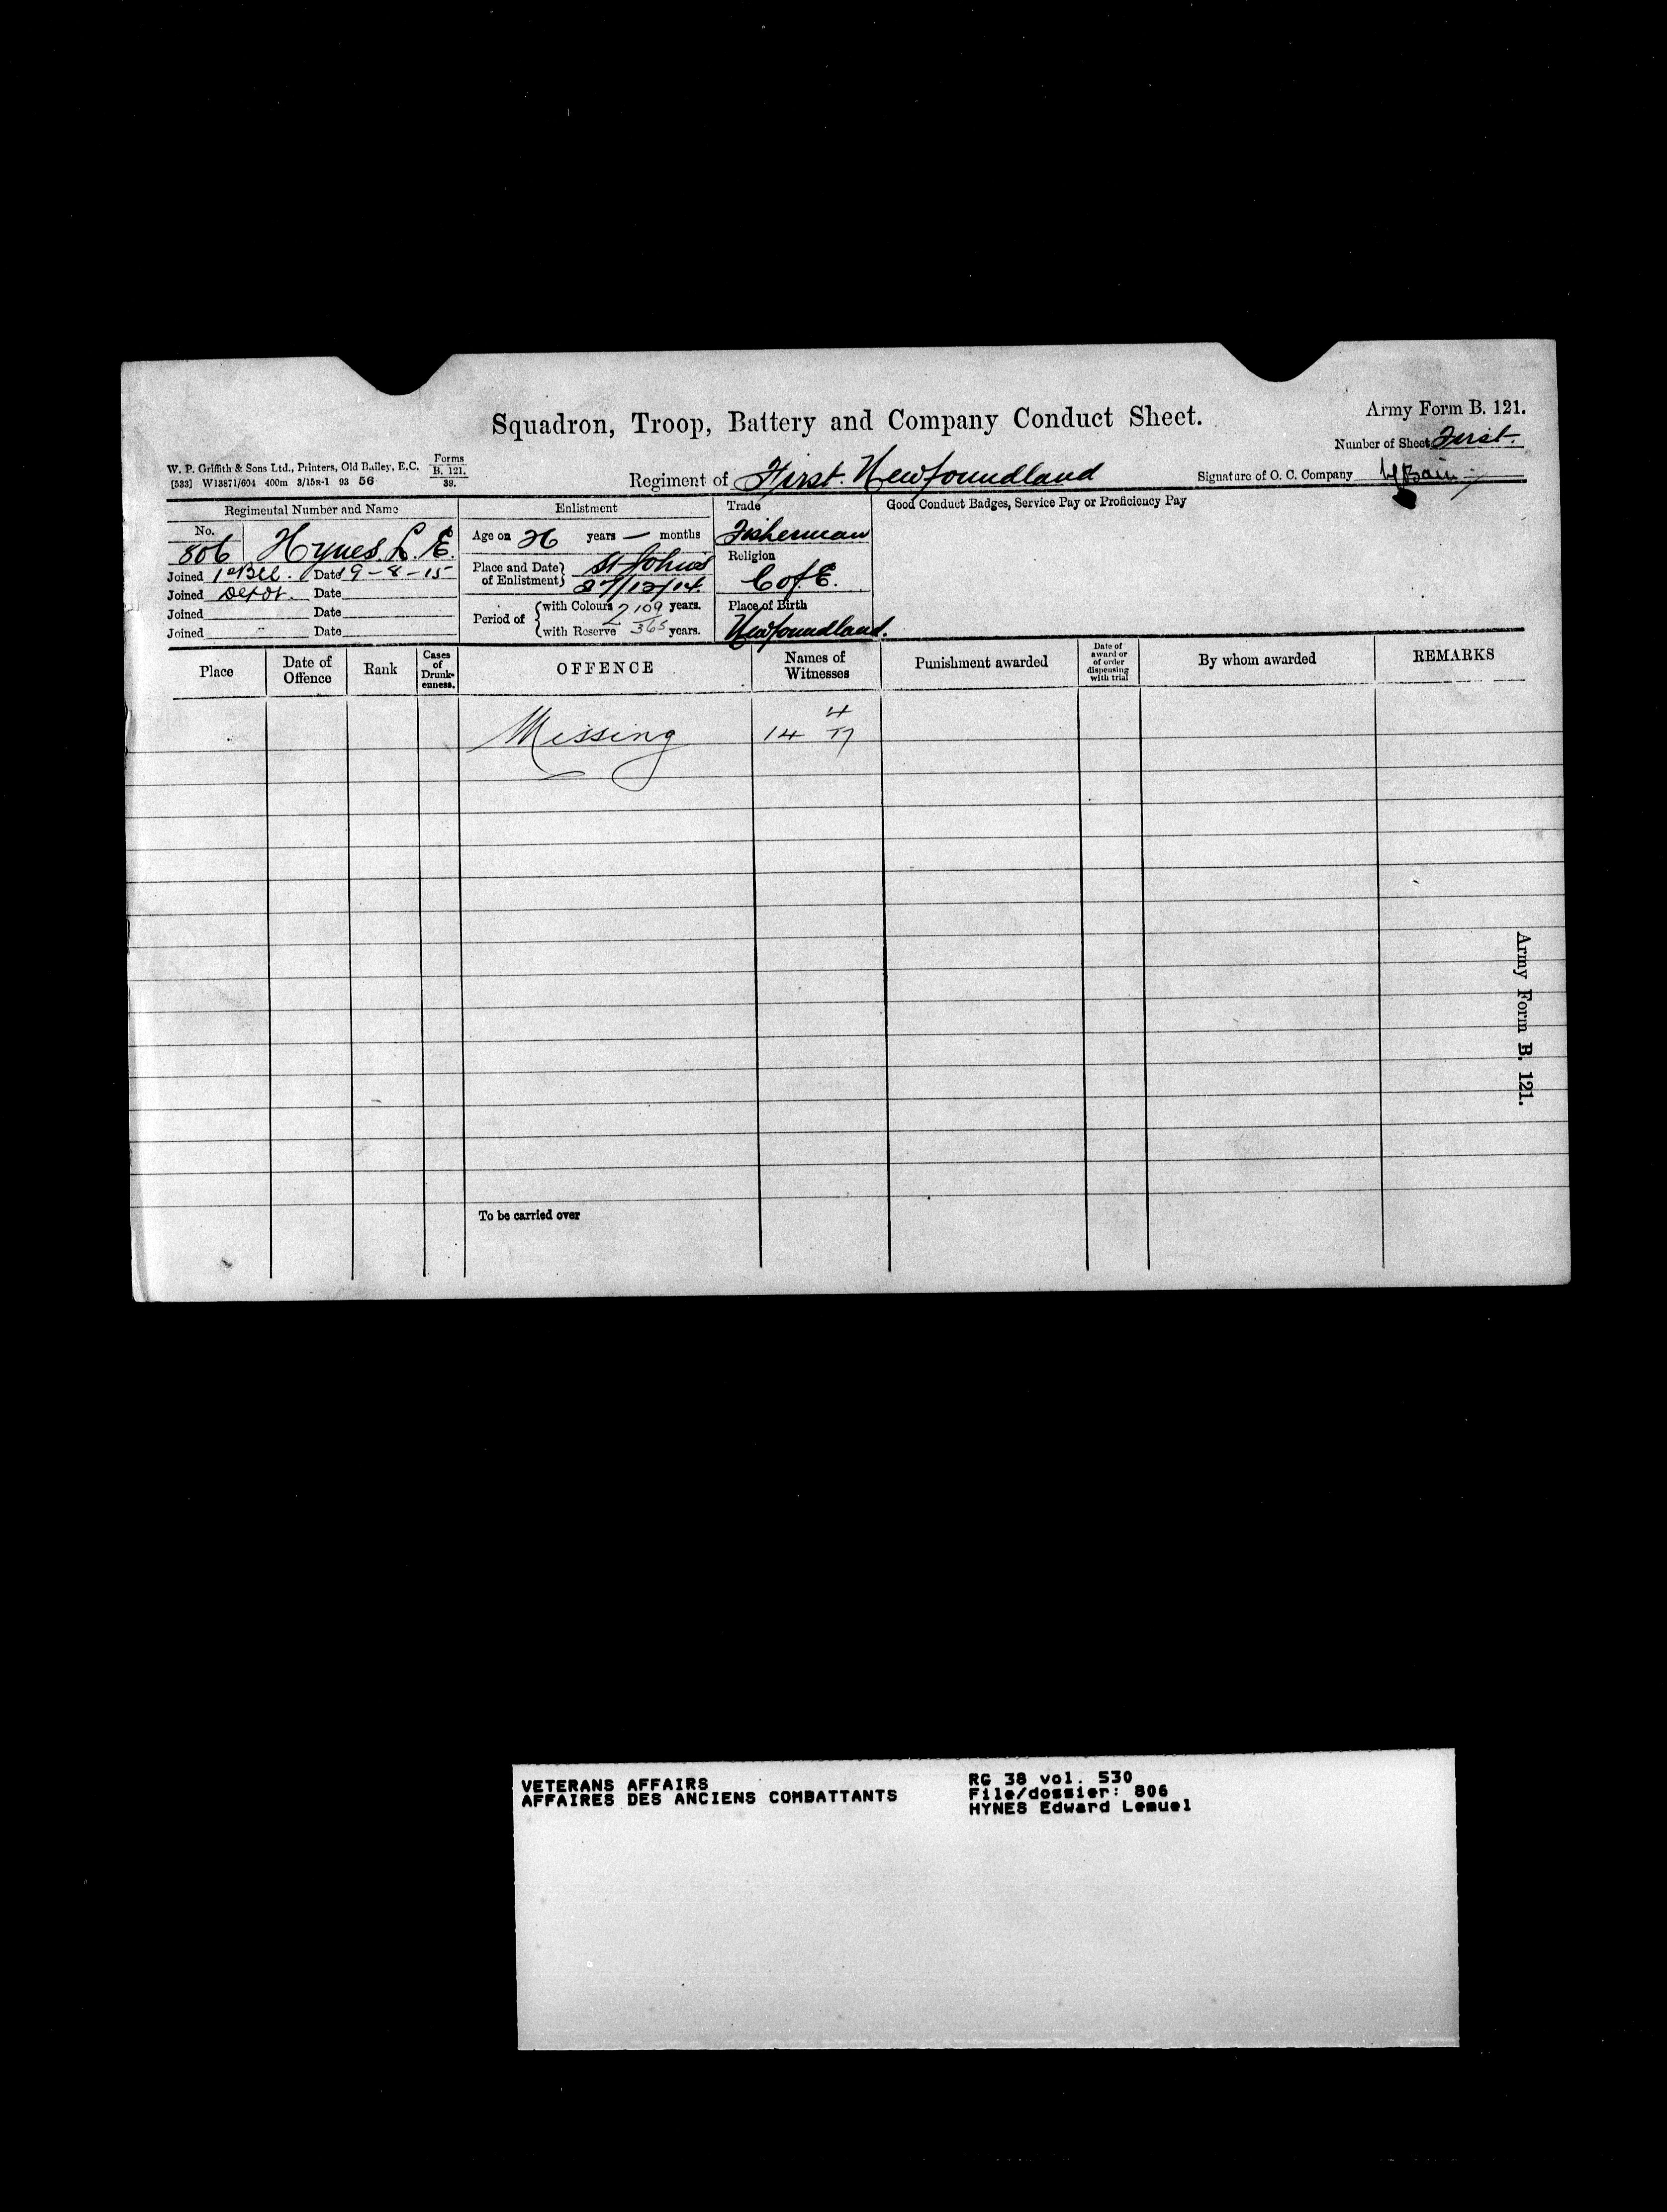 Army Form B. 121.
Squadron, Troop, Battery and Company Conduct Sheet.
Number of Sheet First.
W. P. Griffith & Sons Ltd., Printers, Old Bailey, E.C. Forms B. 121. 39.
[533] W13871/604 400m 3/15R-1 93 56
Regiment of First Newfoundland
Signature of O. C. Company
Regimental Number and Name
Enlistment
Trade
Good Conduct Badges, Service Pay or Proficiency Pay
No.
806 Hynes L. E.
Age on 26 years — months
Fisherman
Joined 1st Date 9-8-15
Place and Date of Enlistment St Johns
Religion
Joined Depot. Date
27/12/14.
C of E.
Joined Date
Period of with Colours 2 109 years.
Place of Birth
Joined Date
with Reserve 365 years.
Newfoundland.
Place
Date of Offence
Rank
Cases of Drunkenness.
OFFENCE
Names of Witnesses
Punishment awarded
Date of award or of order dispensing with trial
By whom awarded
REMARKS
Missing 14 4 17
Army Form B. 121.
To be carried over
VETERANS AFFAIRS
AFFAIRES DES ANCIENS COMBATTANTS
RG 38 vol. 530
File/dossier: 806
HYNES Edward Lemuel